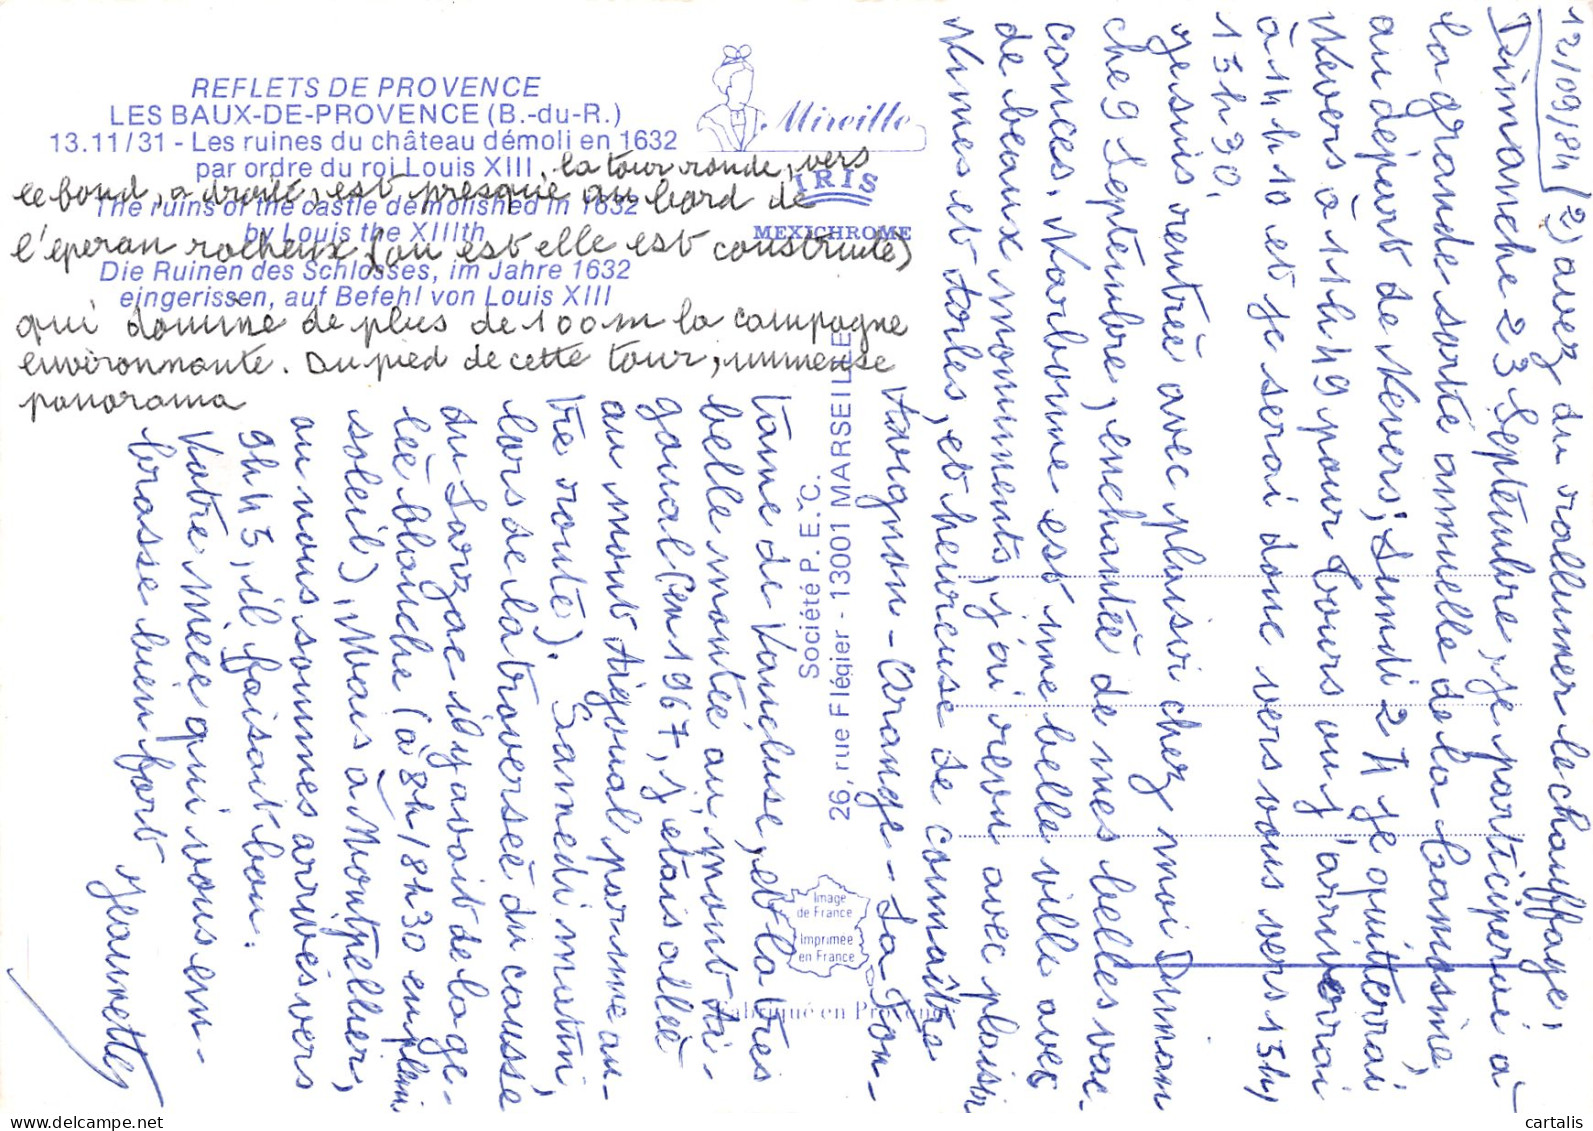 REFLETS DE PROVENCE
LES BAUX-DE-PROVENCE (B.-du-R.)
13.11/31 - Les ruines du château démoli en 1632
par ordre du roi Louis XIII
The ruins of the castle demolished in 1632
by Louis the XIIIth
Die Ruinen des Schlosses, im Jahre 1632
eingerissen, auf Befehl von Louis XIII
Mireille
IRIS
MEXICHROME
la tour ronde, vers
le fond, a droite, est presque au bord de
l'éperan rocheux (ou est elle est construite)
qui domine de plus de 100m la campagne
environnante. Du pied de cette tour, immense
panorama
Société P.E.C.
26, rue Flégier - 13001 MARSEILLE
Image
de France
Imprimée
en France
Fabriqué en Provence
12/09/84 (2) avez du rallumer le chauffage.
Dimanche 23 Septembre, je participerai à
la grande sortie annuelle de la Camosine,
au départ de Nevers; Lundi 24 je quitterai
Nevers à 11h49 pour Tours ou j'arriverai
à 14h10 et je serai donc vers vous vers 15h,
15h30.
Je suis rentrée avec plaisir chez moi Diman
che 9 Septembre, enchantée de mes belles vac-
cances. Narbonne est une belle ville avec
de beaux monuments, j'ai revu avec plaisir
Nimes et Arles, et heureuse de connaître
Avignon - Orange - La Fon-
taine de Vaucluse, et la très
belle montée au mont Ai-
goual (en 1967, j'étais allée
au mont Aigoual par une au-
tre route). Samedi matin,
lors de la traversée du causse
du Larzac il y avait de la ge-
lée blanche (à 8h/8h30 en plein
soleil), Mais à Montpellier,
ou nous sommes arrivés vers
9h45, il faisait bon.
Votre Nièce qui vous em-
brasse bien fort
Jeannette
www.cartalis.com